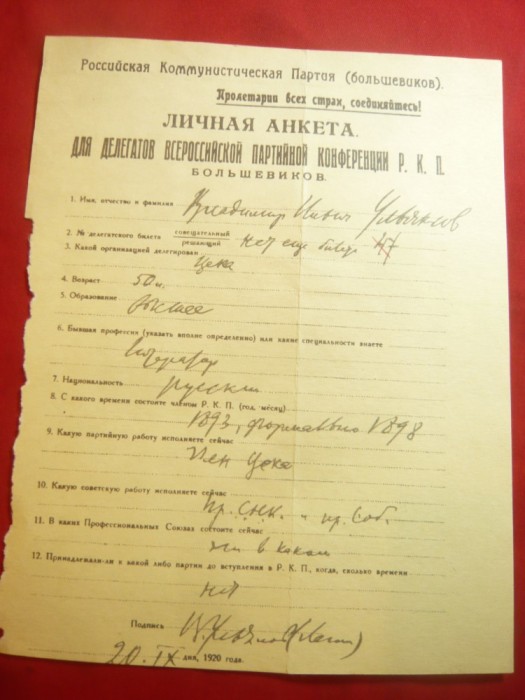 Российская Коммунистическая Партия (большевиков).
Пролетарии всех стран, соединяйтесь!
ЛИЧНАЯ АНКЕТА.
ДЛЯ ДЕЛЕГАТОВ ВСЕРОССИЙСКОЙ ПАРТИЙНОЙ КОНФЕРЕНЦИИ Р. К. П.
БОЛЬШЕВИКОВ.
1. Имя, отчество и фамилия Владимир Ильич Ульянов
2. № делегатского билета совещательный
решающий нет еще билета 47
3. Какой организацией делегирован
Цека
4. Возраст 50 л.
5. Образование высшее
6. Бывшая профессия (указать вполне определенно) или какие специальности знаете
литератор
7. Национальность русский
8. С какого времени состоите членом Р. К. П. (год, месяц)
1893, формально 1898
9. Какую партийную работу исполняете сейчас
Член Цека
10. Какую советскую работу исполняете сейчас
пр. С.Н.К. и пр. С.об.
11. В каких Профессиональных Союзах состоите сейчас
ни в каком
12. Принадлежали-ли к какой либо партии до вступления в Р. К. П., когда, сколько времени
нет
Подпись В. Ульянов (Ленин)
20. IX дня, 1920 года.